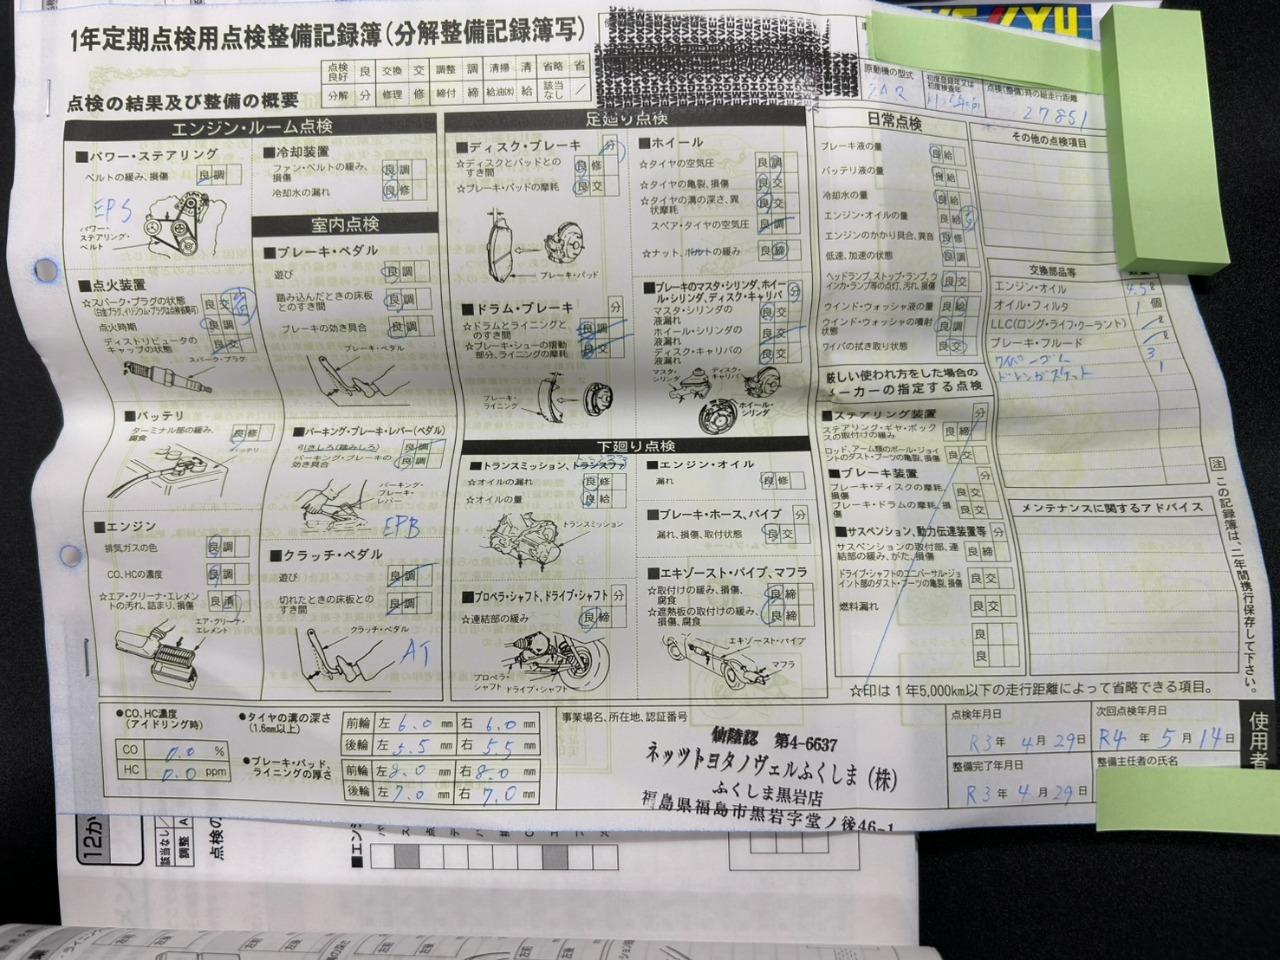 1年定期点検用点検整備記録簿(分解整備記録簿写)
点検の結果及び整備の概要
点検良好 良 交換 交 調整 調 清掃 清 省略 省
分解 分 修理 修 締付 締 給油(水) 給 該当なし /
原動機の型式
2AR
初度登録年又は初度検査年
点検(整備)時の総走行距離
27851
エンジン・ルーム点検
■パワー・ステアリング
ベルトの緩み、損傷 良 調
EPS
パワー・ステアリング・ベルト
■点火装置
☆スパーク・プラグの状態 良 交
(白金プラグ、イリジウム・プラグは点検省略可)
点火時期 良 調
ディストリビュータのキャップの状態 良 交
スパーク・プラグ
■バッテリ
ターミナル部の緩み、腐食 良 修
バッテリ
■エンジン
排気ガスの色 良 調
CO、HCの濃度 良 調
☆エア・クリーナ・エレメントの汚れ、詰まり、損傷 良 清
エア・クリーナ・エレメント
■冷却装置
ファン・ベルトの緩み、損傷 良 調
冷却水の漏れ 良 修
室内点検
■ブレーキ・ペダル
遊び 良 調
踏み込んだときの床板とのすき間 良 調
ブレーキの効き具合 良 調
ブレーキ・ペダル
■パーキング・ブレーキ・レバー(ペダル)
引きしろ(踏みしろ) 良 調
パーキング・ブレーキの効き具合 良 調
パーキング・ブレーキ・レバー
EPB
■クラッチ・ペダル
遊び 良 調
切れたときの床板とのすき間 良 調
クラッチ・ペダル
AT
足廻り点検
■ディスク・ブレーキ 分
☆ディスクとパッドとのすき間 良 修
☆ブレーキ・パッドの摩耗 良 交
ブレーキ・パッド
■ドラム・ブレーキ 分
☆ドラムとライニングとのすき間 良 調
☆ブレーキ・シューの摺動部分、ライニングの摩耗 良 交
ブレーキ・ライニング
■ホイール
☆タイヤの空気圧 良 調
☆タイヤの亀裂、損傷 良 交
☆タイヤの溝の深さ、異状摩耗 良 交
スペア・タイヤの空気圧 良 調
☆ナット、ボルトの緩み 良 締
■ブレーキのマスタ・シリンダ、ホイール・シリンダ、ディスク・キャリパ 分
マスタ・シリンダの液漏れ 良 交
ホイール・シリンダの液漏れ 良 交
ディスク・キャリパの液漏れ 良 交
マスタ・シリンダ
ディスク・キャリパ
ホイール・シリンダ
下廻り点検
■トランスミッション、トランスファ
☆オイルの漏れ 良 修
☆オイルの量 良 給
トランスミッション
■プロペラ・シャフト、ドライブ・シャフト 分
☆連結部の緩み 良 締
プロペラ・シャフト
ドライブ・シャフト
■エンジン・オイル
漏れ 良 修
■ブレーキ・ホース、パイプ 分
漏れ、損傷、取付状態 良 交
■エキゾースト・パイプ、マフラ
☆取付けの緩み、損傷、腐食 良 締
☆遮熱板の取付けの緩み、損傷、腐食 良 締
エキゾースト・パイプ
マフラ
日常点検
ブレーキ液の量 良 給
バッテリ液の量 良 給
冷却水の量 良 給
エンジン・オイルの量 良 給
エンジンのかかり具合、異音 良 修
低速、加速の状態 良 調
ヘッドランプ、ストップ・ランプ、ウインカ・ランプ等の点灯、汚れ、損傷 良 交
ウインド・ウォッシャ液の量 良 給
ウインド・ウォッシャの噴射状態 良 調
ワイパの拭き取り状態 良 交
厳しい使われ方をした場合の
ーカーの指定する点検
■ステアリング装置 分
ステアリング・ギヤ・ボックスの取付けの緩み 良 締
ロッド、アーム類のボール・ジョイントのダスト・ブーツの亀裂、損傷 良 交
■ブレーキ装置 分
ブレーキ・ディスクの摩耗、損傷 良 交
ブレーキ・ドラムの摩耗、損傷 良 交
■サスペンション、動力伝達装置等 分
サスペンションの取付部、連結部の緩み、がた、損傷 良 締
ドライブ・シャフトのユニバーサル・ジョイント部のダスト・ブーツの亀裂、損傷 良 交
燃料漏れ 良 交
良
良
その他の点検項目
交換部品等
エンジン・オイル 4.5ℓ
オイル・フィルタ 1 個
LLC(ロング・ライフ・クーラント) ℓ
ブレーキ・フルード ℓ
ワイパーゴム 3
ドレンガスケット 1
メンテナンスに関するアドバイス
注 この記録簿は、二年間携行保存して下さい。
☆印は1年5,000km以下の走行距離によって省略できる項目。
●CO、HC濃度(アイドリング時)
CO 0.0 %
HC 0.0 ppm
●タイヤの溝の深さ(1.6mm以上)
前輪 左 6.0 mm 右 6.0 mm
後輪 左 5.5 mm 右 5.5 mm
●ブレーキ・パッド、ライニングの厚さ
前輪 左 8.0 mm 右 8.0 mm
後輪 左 7.0 mm 右 7.0 mm
事業場名、所在地、認証番号
仙陸認 第4-6637
ネッツトヨタノヴェルふくしま(株)
ふくしま黒岩店
福島県福島市黒岩字堂ノ後46-1
点検年月日
R3年 4月 29日
整備完了年月日
R3年 4月 29日
次回点検年月日
R4年 5月 14日
整備主任者の氏名
使用者
12か
該当なし
調整 A
点検の
■エンジ